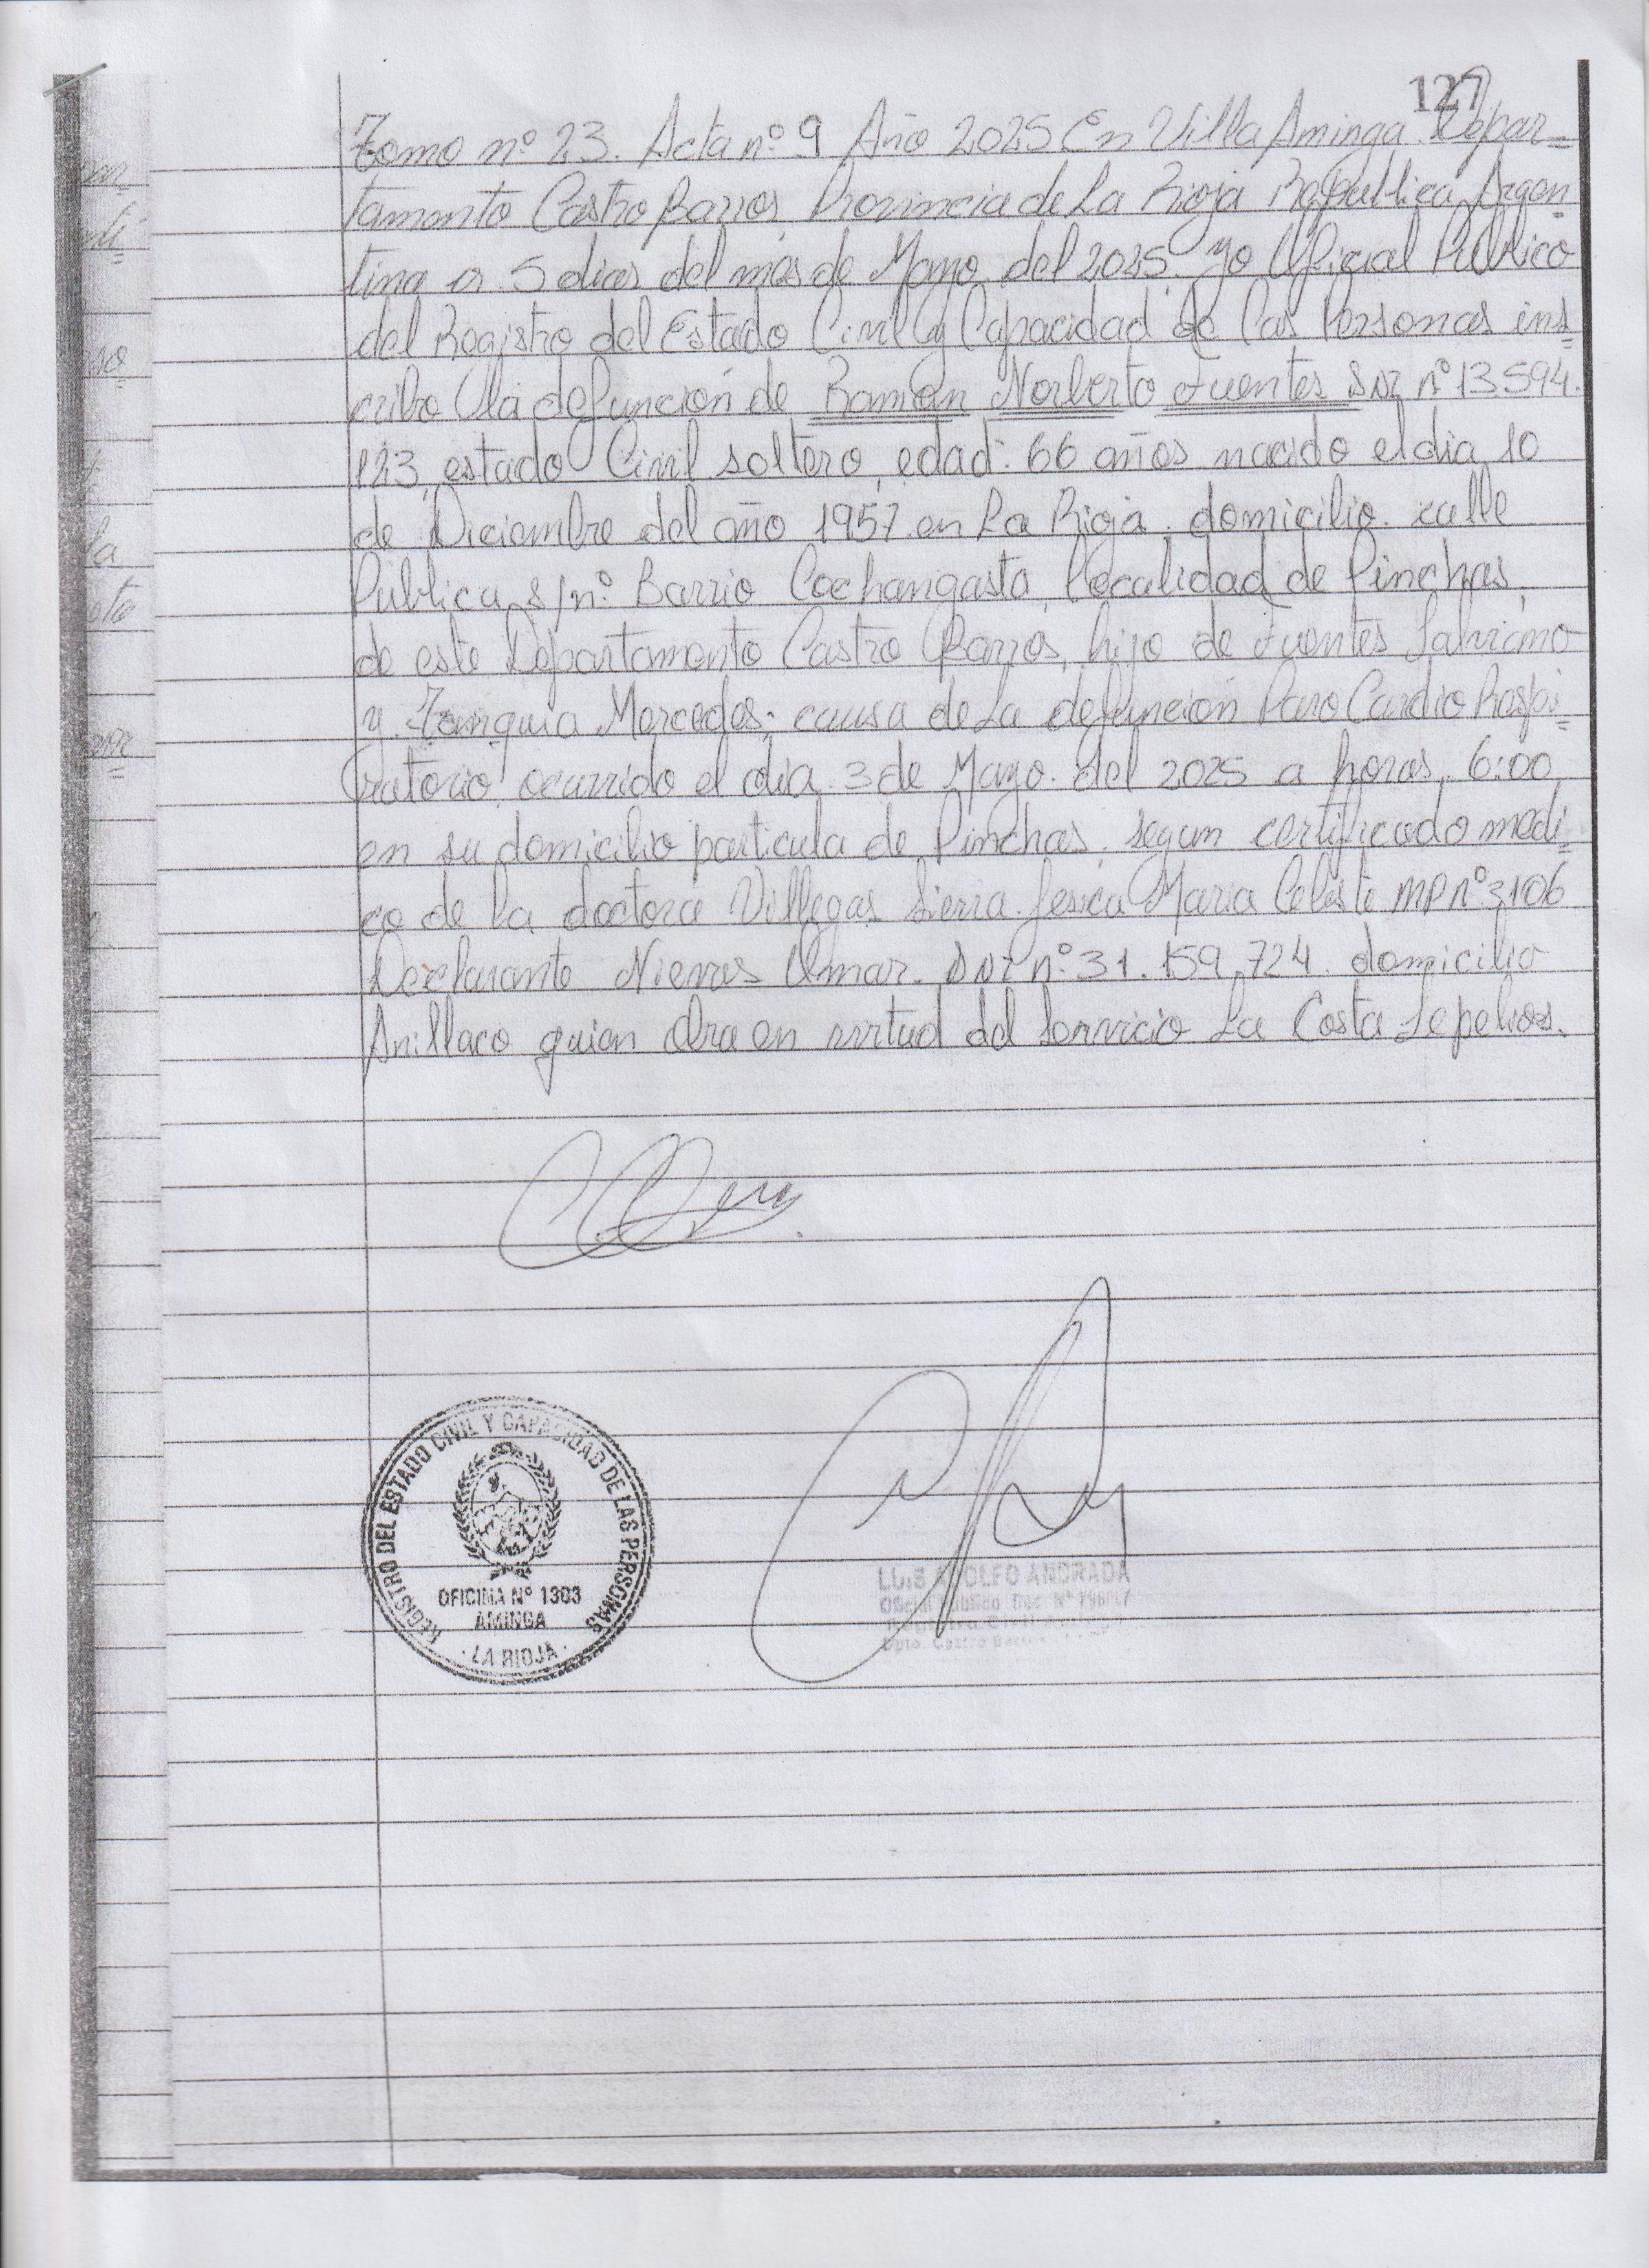 127
Tomo nº 23. Acta nº 9 Año 2025 En Villa Aminga. Depar=
tamento Castro Barros, Provincia de La Rioja Republica Argen=
tina a 5 dias del mes de Mayo del 2025. Yo Oficial Publico
del Registro del Estado Civil y Capacidad de Las Personas ins=
cribo la defunción de Ramón Norberto Fuentes DNI nº 13.594.
123, estado Civil soltero, edad: 66 años nacido el dia 10
de Diciembre del año 1957 en La Rioja. domicilio. calle
Publica s/nº Barrio Cochangasta, Localidad de Pinchas,
de este Departamento Castro Barros, hijo de Fuentes
y Mercedes; causa de La defunción Paro Cardio Respi=
ratorio ocurrido el dia 3 de Mayo del 2025 a horas, 6:00,
en su domicilio particula de Pinchas, segun certificado medi=
co de la doctora Villegas Sierra Jesica Maria Celeste MP nº 3106
Declarante Nieves Omar. DNI nº 31.159.724. domicilio
Anillaco quien obra en virtud del Servicio La Costa Sepelios.
REGISTRO DEL ESTADO CIVIL Y CAPACIDAD DE LAS PERSONAS
OFICINA Nº 1303
AMINGA
· LA RIOJA ·
LUIS ADOLFO ANDRADA
Oficial Público Dec. Nº
Registro Civil
Dpto. Castro Barros